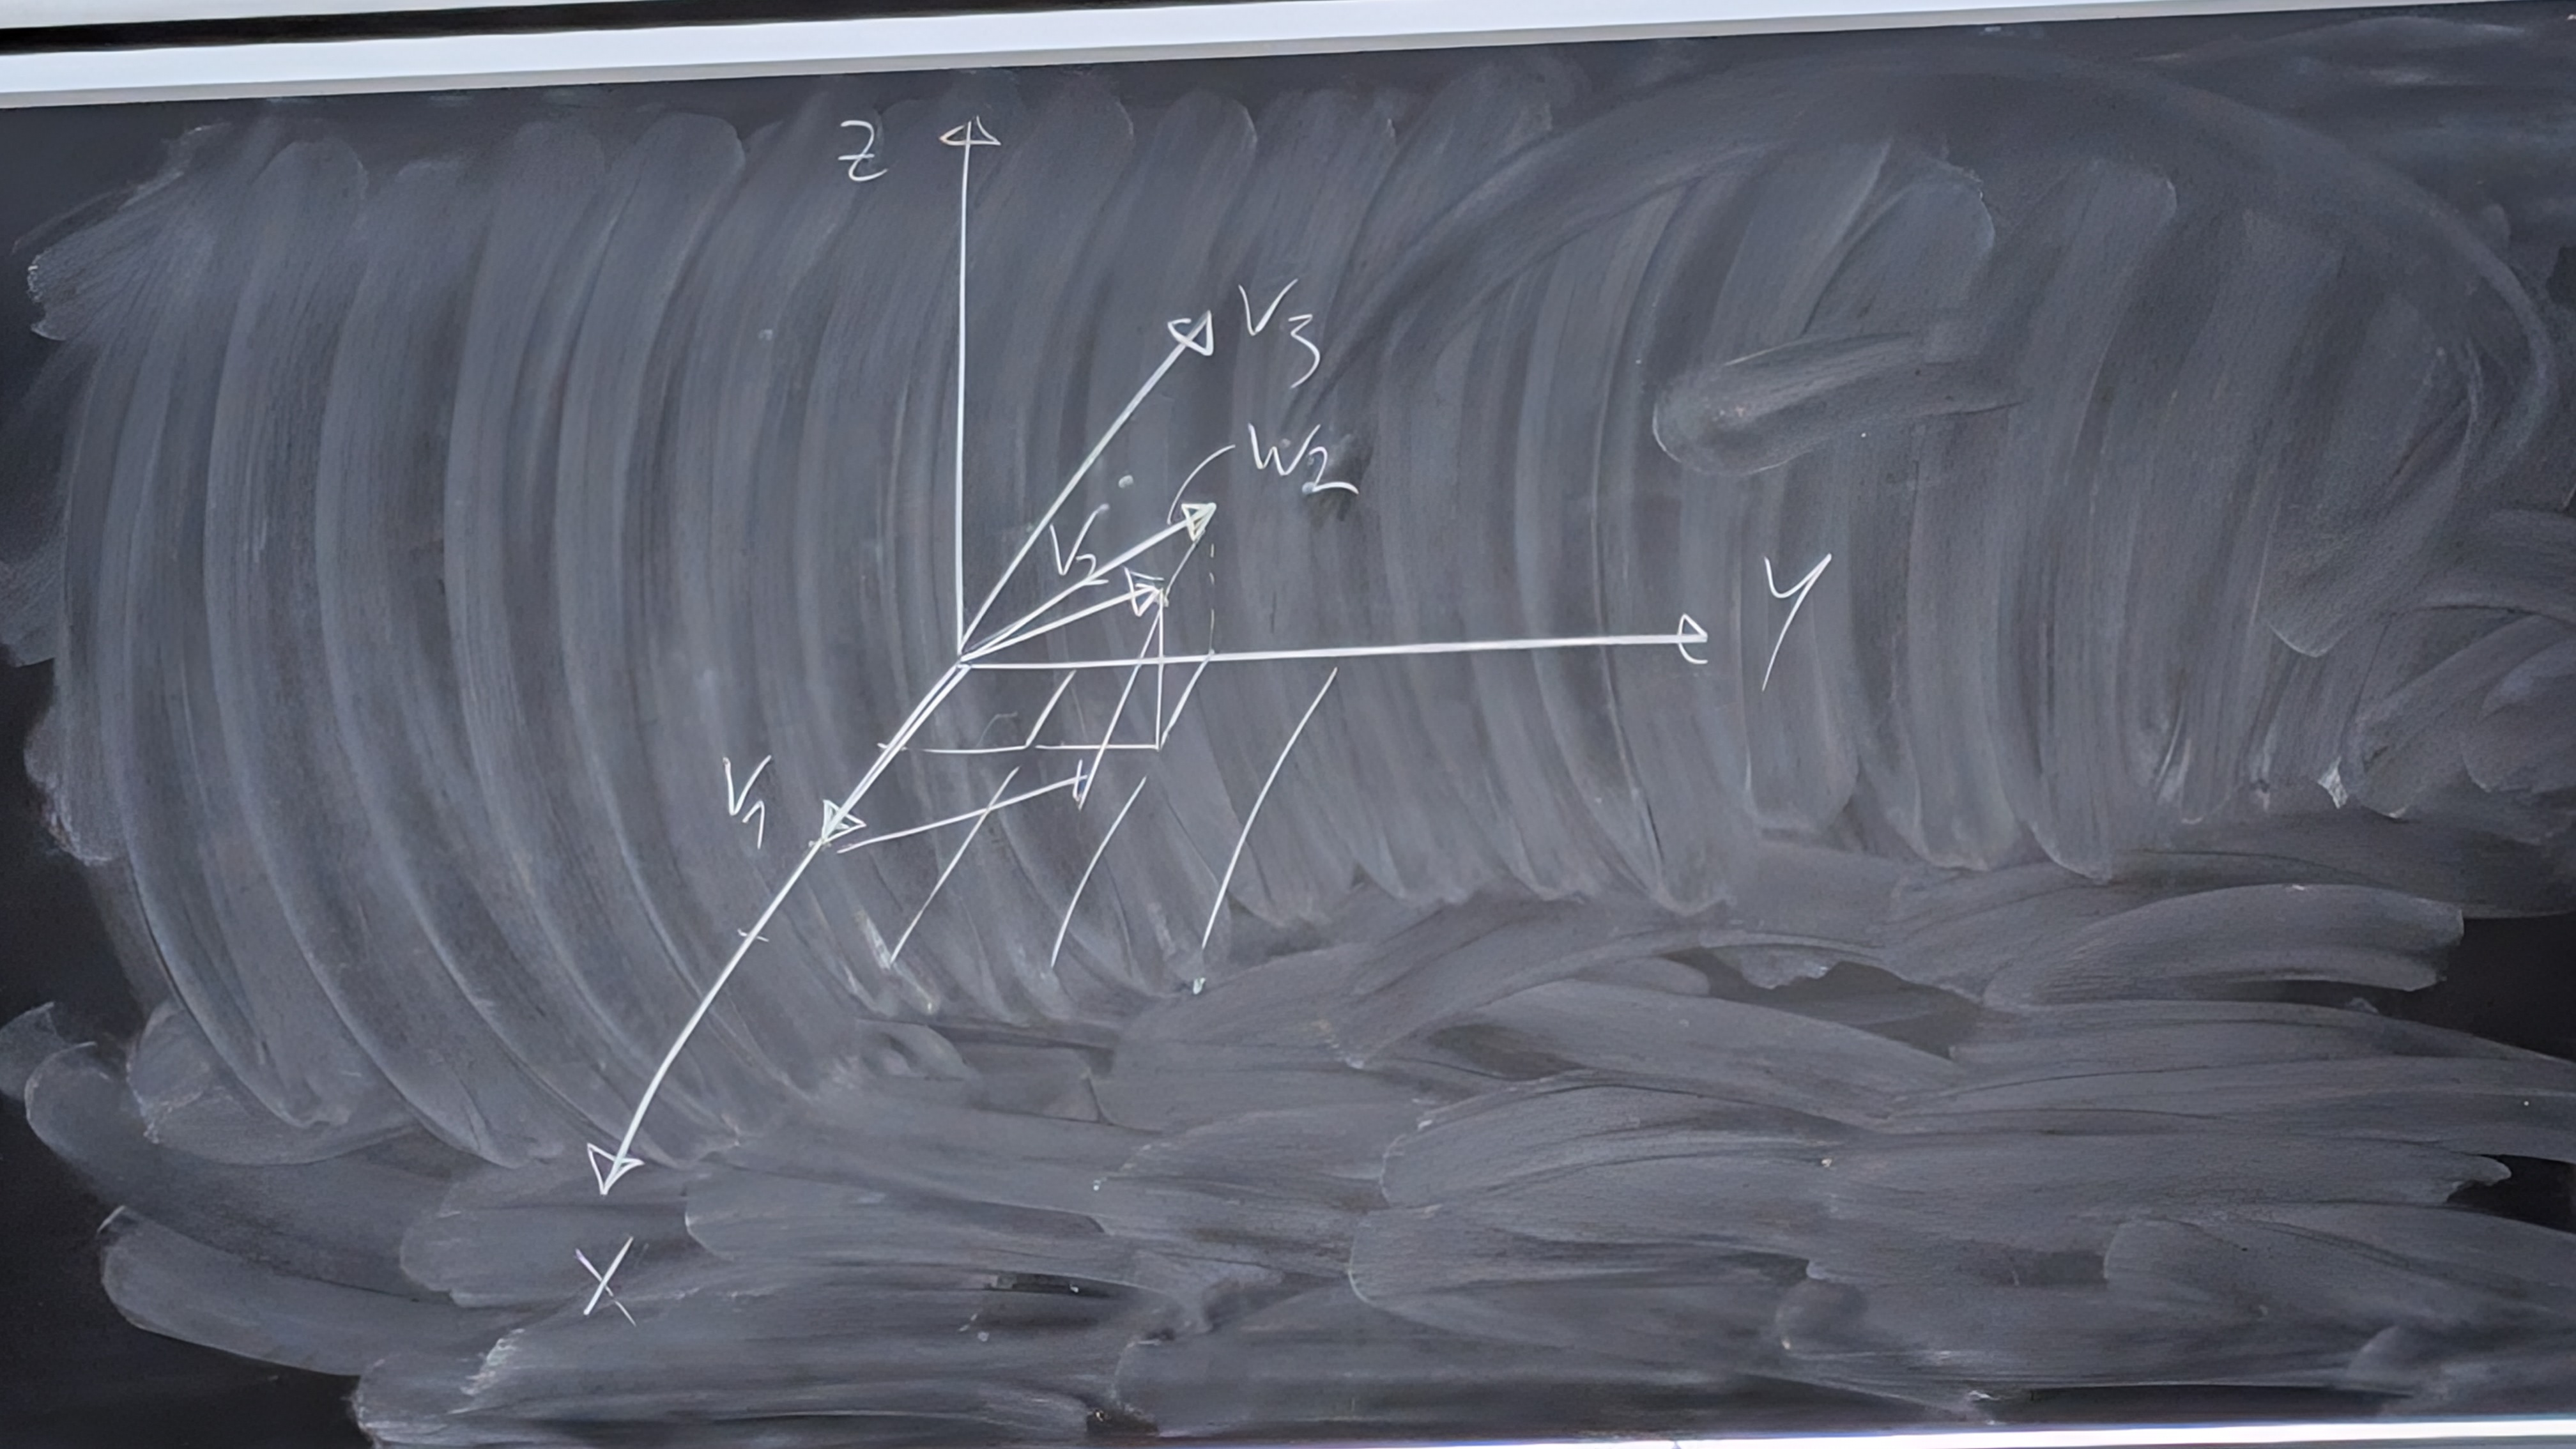 Z
V3
W2
V2
Y
V1
X